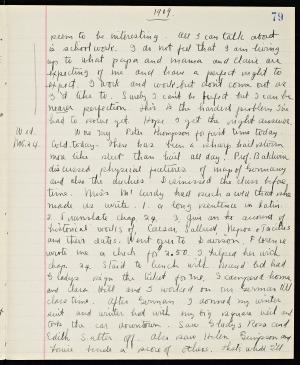 1909
79
seem to be interesting. All I can talk about
is school work. I do not feel that I am living
up to what papa and mama and Claire are
expecting of me and have a perfect right to
expect. I work and work but don't come out as
I'd like to. Surely I can't be perfect but I can be
nearer perfection. This is the hardest problem I've
had to solve yet. Hope I get the right answer.
Wed.
Nov. 24.
Thompson for first time today.
Cold today. There has been a sharp hail storm
more like sleet than hail all day. Prof. Baldwin
discussed physical pictures of map of Germany
and also the duchies I reviewed the class before
time. Miss had such a cold that she
made us write. 1. a long sentence in Latin.
2. Translate chap. 24. 3. Give an account of
historical works of, Caesar, Sallust, Nepos & Tacitus
and their dates. Went over to Dawson. Florence
wrote me a check for 2.50. I helped her with
chap. 24. Staid to lunch with
Gladys sign the for me, I came home
and Clara Hill and I worked on our German till
class time. After German I donned my winter
suit and winter hat with my big veil and
took the car downtown. Saw Gladys Ross and
Edith off. Also saw Helen Simpson and
a score of others. That's what I'll